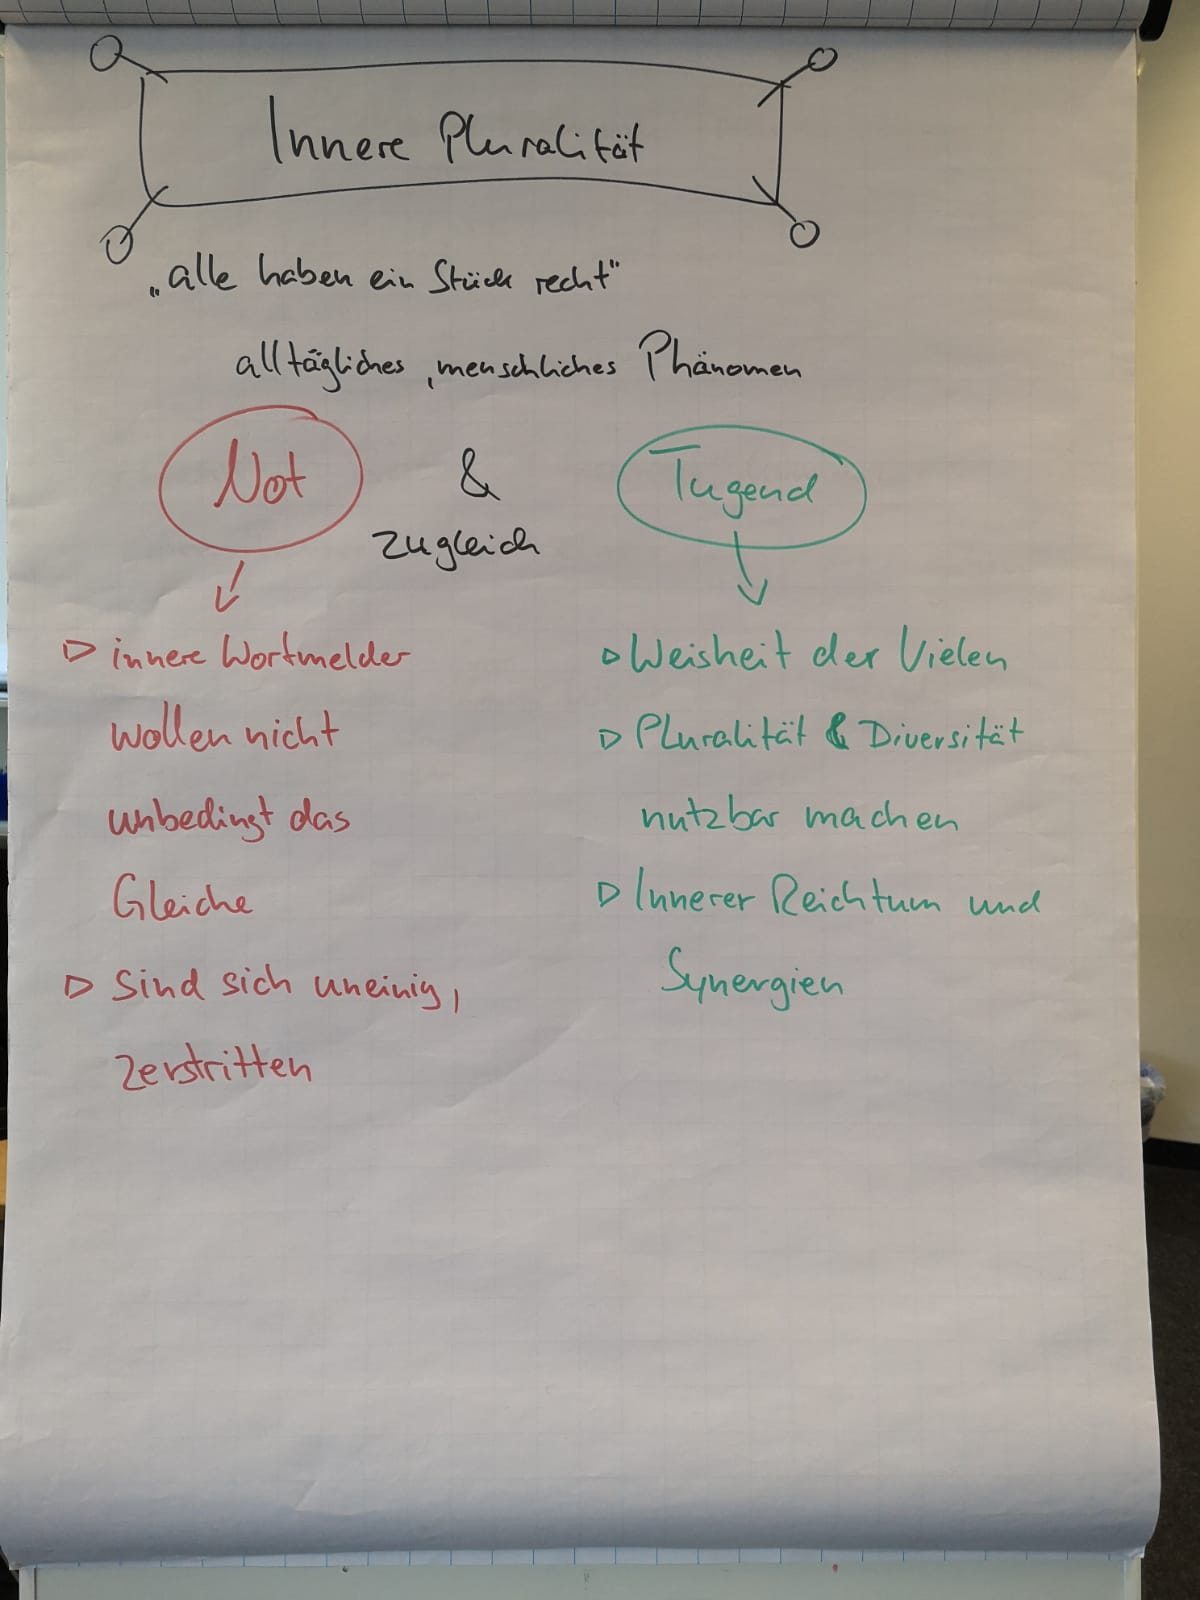 Innere Pluralität
„alle haben ein Stück recht"
alltägliches, menschliches Phänomen
Not & Tugend
zugleich
▷ innere Wortmelder
wollen nicht
unbedingt das
Gleiche
▷ Sind sich uneinig,
zerstritten
▷ Weisheit der Vielen
▷ Pluralität & Diversität
nutzbar machen
▷ Innerer Reichtum und
Synergien